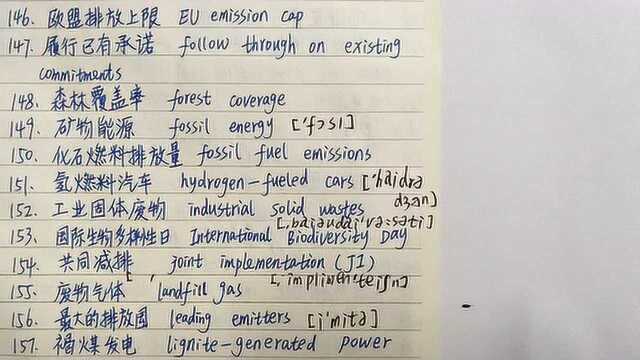 146. 欧盟排放上限 EU emission cap
147. 履行已有承诺 follow through on existing
commitments
148. 森林覆盖率 forest coverage
149. 矿物能源 fossil energy ['fɔsl]
150. 化石燃料排放量 fossil fuel emissions
151. 氢燃料汽车 hydrogen-fueled cars ['haidrə
dʒən]
152. 工业固体废物 industrial solid wastes
[,baiəudai'və:səti]
153. 国际生物多样性日 International Biodiversity Day
154. 共同减排 joint implementation (JI)
[,implimen'teiʃn]
155. 废物气体 landfill gas
156. 最大的排放国 leading emitters [i'mitə]
157. 褐煤发电 lignite-generated power